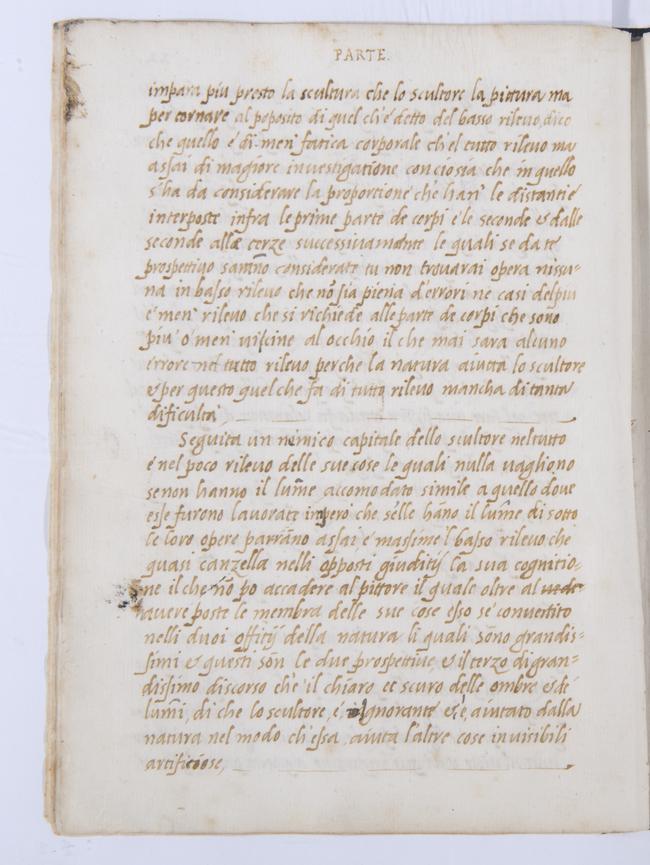 PARTE.
impara piu presto la scultura che lo scultore la pittura ma
per tornare al poposito di quel ch'è detto del basso rilevo, dico
che quello è di men' fatica corporale ch'el tutto rilevo ma
assai di magiore investigatione conciosia che in quello
s'ha da considerare la proportione che han' le distantie
interposte infra le prime parte de corpi e le seconde & dalle
seconde alle terze successivamente le quali se da te
prospettivo saranno considerate tu non trovarai opera nissu=
na in basso rilevo che nō sia piena d'errori ne casi del piu
e men' rilevo che si richiede alle parte de corpi che sono
piu o men' viscine al occhio il che mai sara alcuno
errore nel tutto rilevo perche la natura aiutta lo scultore
& per questo quel che fa di tutto rilevo mancha di tanta
dificulta
Seguita un nimico capitale dello scultore nel tutto
e nel poco rilevo delle sue cose le quali nulla vagliono
se non hanno il lume accomodato simile a quello dove
esse furono lavorate impero che s'elle hāno il lume di sotto
le loro opere parrāno assai, e massime 'l basso rilevo che
quasi canzella nelli opposti giuditij la sua cognitio=
ne il che nō po accadere al pittore il quale oltre al vede
avere poste le membra delle sue cose esso se convertito
nelli duoi offitij della natura li quali sōno grandis=
simi & questi sōn le due prospettive & il terzo di gran=
dissimo discorso che 'il chiaro et scuro delle ombre & de
lumi, di che lo scultore, e ignorante & è, aiutato dalla
natura nel modo ch'essa aiuta l'altre cose invisibili
artificiose,